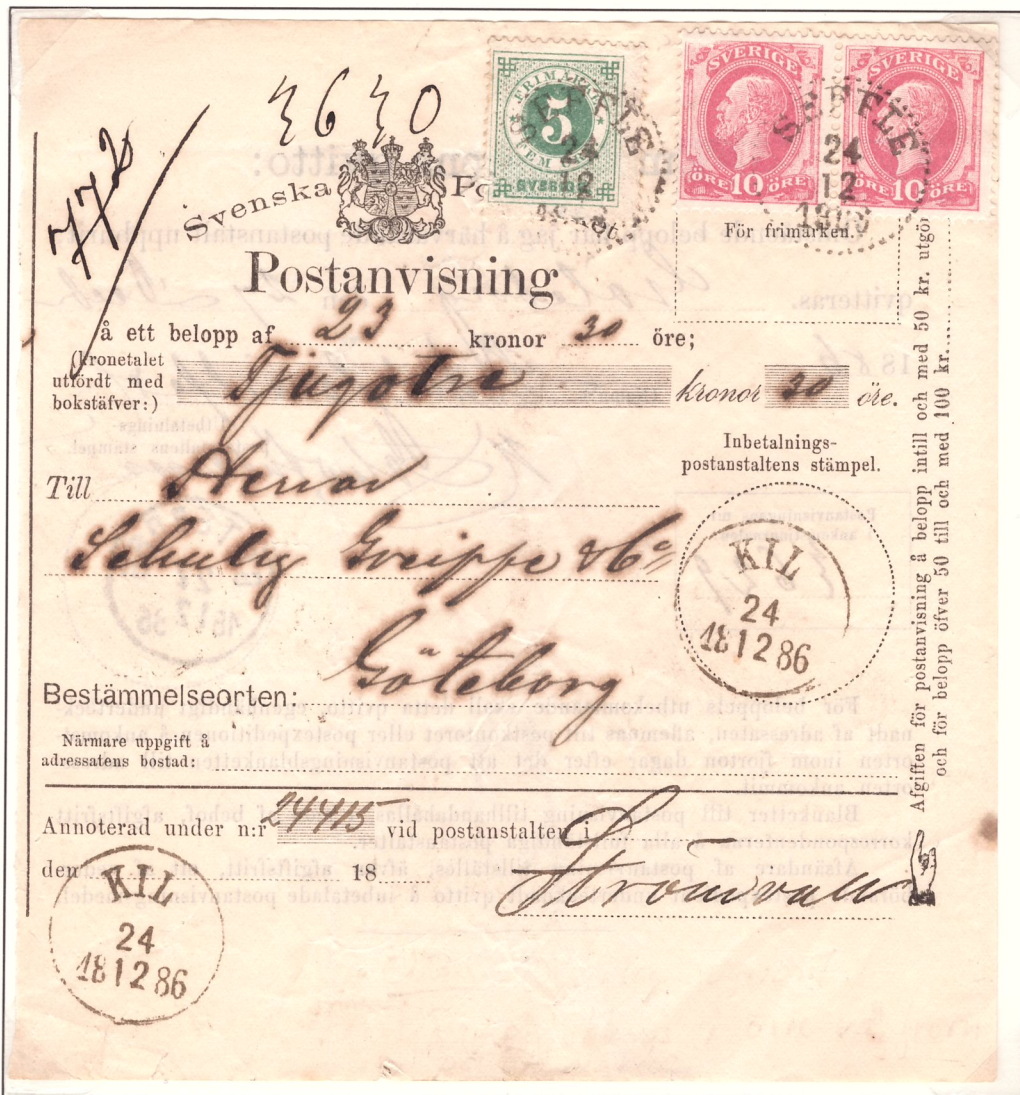 3630
772
Svenska Po
FRIMÄRKE
5
FEM ÖRE
SVERIGE
SEFFLE
24
12
SVERIGE
ÖRE 10 ÖRE
SVERIGE
ÖRE 10 ÖRE
SEFFLE
24
12
För frimärken.
Postanvisning
å ett belopp af 23 kronor 30 öre;
(kronetalet
utfördt med
bokstäfver:) Tjugotre kronor 30 öre.
Inbetalnings-
postanstaltens stämpel.
Till Herrar
Greiffe & Co
KIL
24
18 12 86
Göteborg
Bestämmelseorten:
Närmare uppgift å
adressatens bostad:
Annoterad under n:r 24415 vid postanstalten i
den 18
KIL
24
18 12 86
Afgiften för postanvisning å belopp intill och med 50 kr. utgör
och för belopp öfver 50 till och med 100 kr.